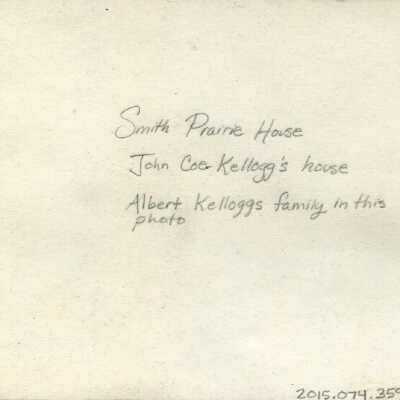 Smith Prairie House
John Coe Kellogg's house
Albert Kelloggs family in this
photo
2015.074.359